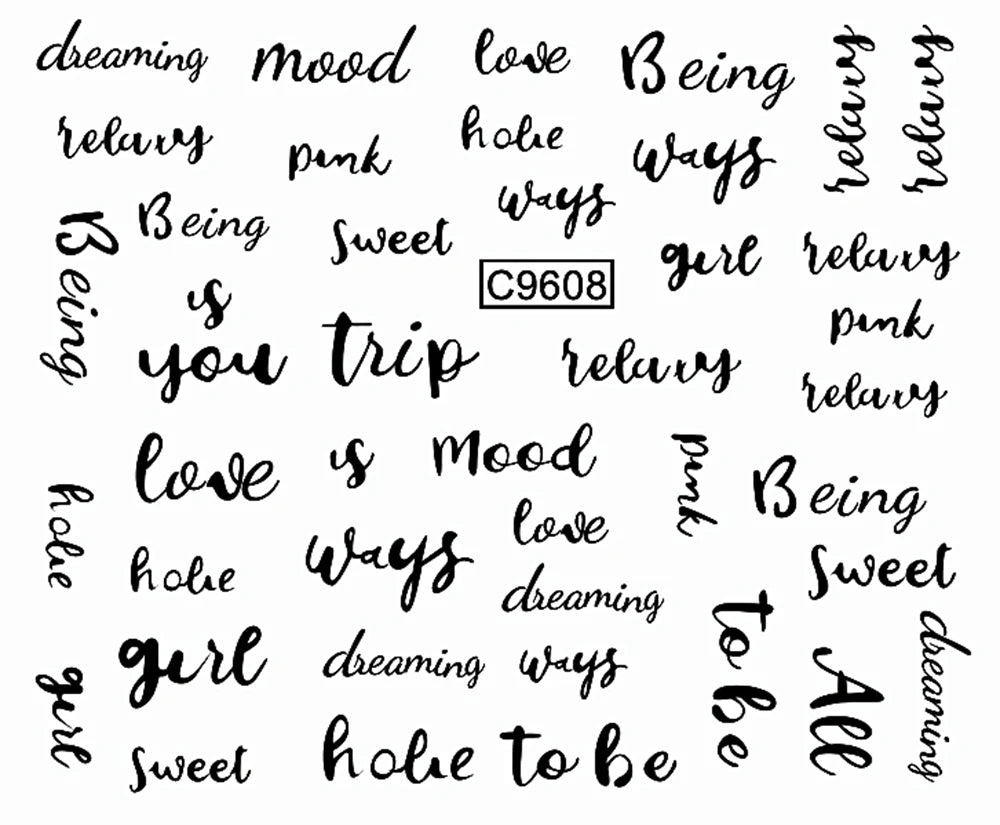 dreaming mood love Being relaxy relaxy
relaxy pink hohe ways
Being Being sweet ways girl relaxy
is C9608 pink
you trip relaxy relaxy
love is Mood pink Being
hohe hohe ways love sweet
dreaming
girl girl dreaming ways to be All dreaming
sweet hohe to be